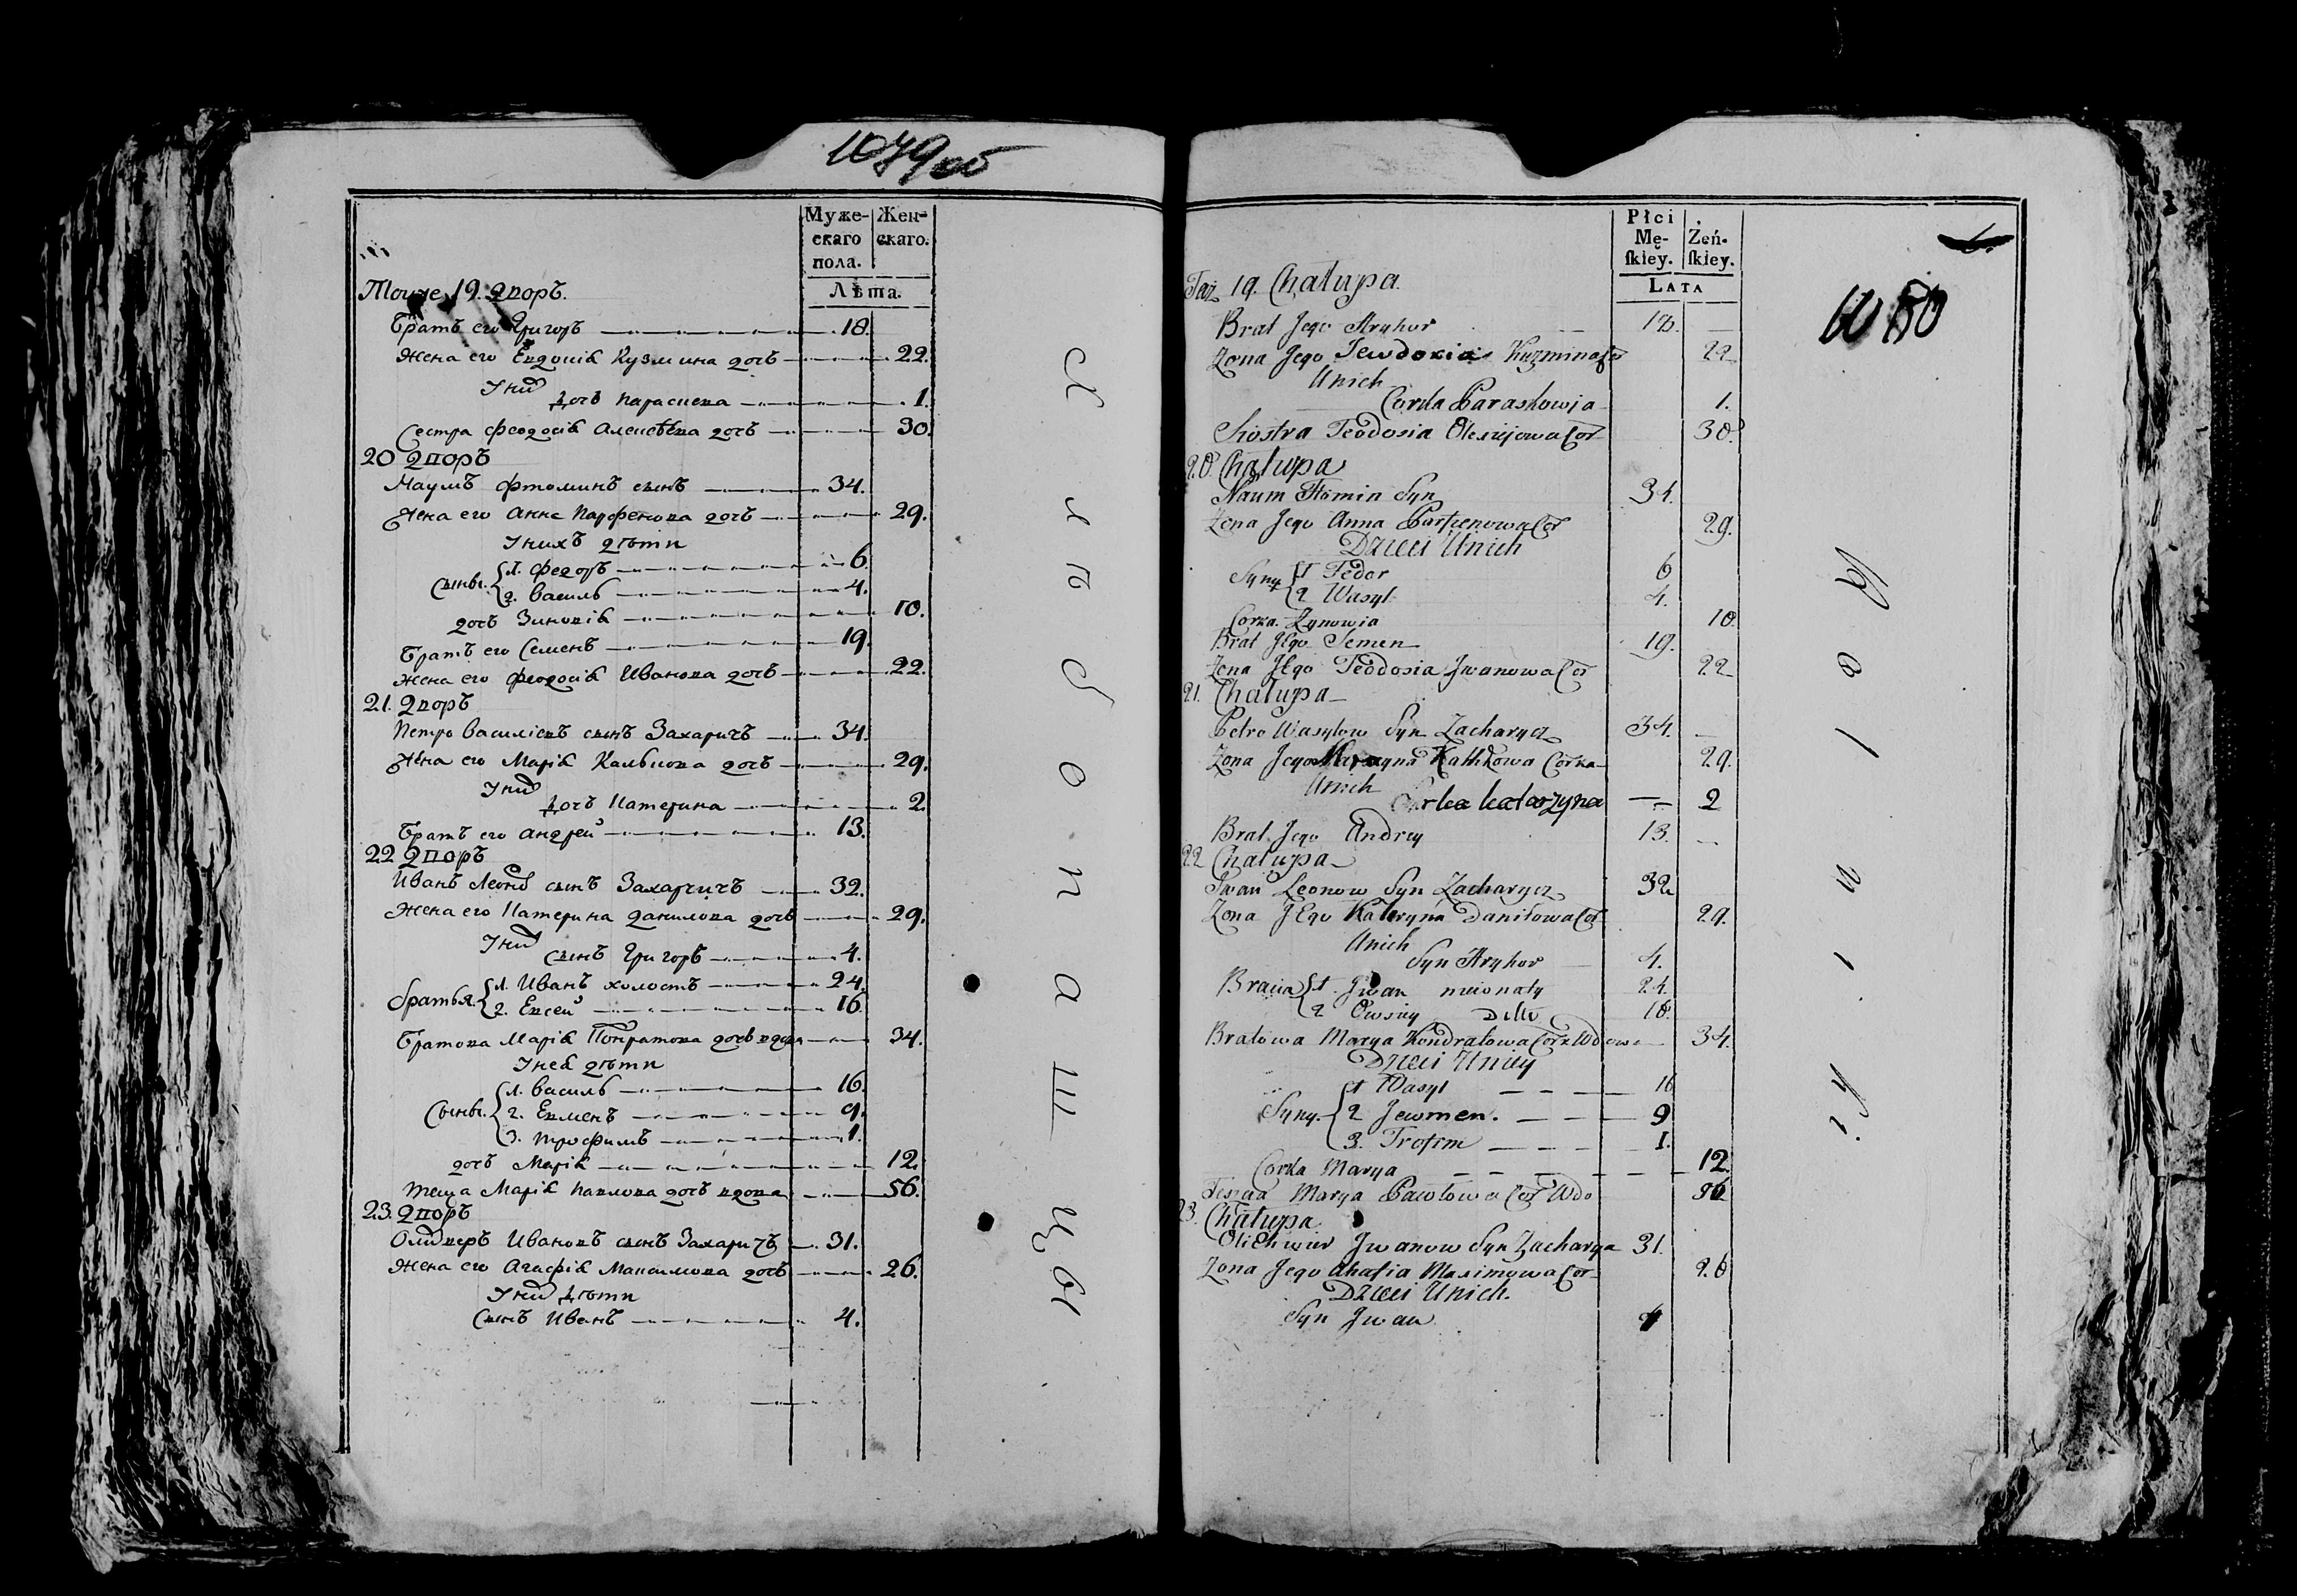 1079 об
Муже-
скаго
пола.
Жен-
скаго.
Лѣта.
Тоиже 19. Дворъ.
Братъ его Григоръ 18.
Жена его Евдокія Кузмина дочь 22.
У них
Дочь Параскева 1.
Сестра Феодосія Алексѣева дочь 30.
20 Дворъ
Наумъ Фтоминъ сынъ 34.
Жена его Анна Парфенова дочь 29.
У нихъ дѣти
Сыны. 1. Федоръ 6
2. Василь 4.
дочь Зиновія 10.
Братъ его Семенъ 19
Жена его Феодосія Иванова дочь 22.
21. Дворъ
Петро Василіевъ сынъ Захаричъ 34.
Жена его Марія Калькова дочь 29.
У них
Дочь Катерина 2
Братъ его Андрей 13.
22 Дворъ
Иванъ Леонов сынъ Захаричъ 32.
Жена его Катерина Данилова дочь 29.
У них
сынъ Григоръ 4.
братья. 1. Иванъ холостъ 24
2. Евсей 16
Братова Марія Кондратова дочь вдова 34.
У нея дѣти
Сыны. 1. Василь 16.
2. Евменъ 9.
3. Трофимъ 1.
дочь Марія 12.
теща Марія Павлова дочь вдова 56.
23. Дворъ
Оливеръ Ивановъ сынъ Захаричъ 31.
Жена его Агафія Максимова дочь 26.
У них Дѣти
Сынъ Иванъ 4.
Хлѣбопашцы
Płci
Mę-
skiey.
Żeń-
skiey.
LATA
1080
Taż 19. Chałupa.
Brat Jego Hryhor 18.
Zona Jego Jewdoxia Kuzmina Cor 22
Unich
Corka Paraskowja 1.
Siostra Teodosia Olexiejowa Cor 30.
20. Chałupa
Naum Ftomin Syn 34.
Zona Jego Anna Parfienowa Cor 29.
Dzieci Unich
Syny 1 Fedor 6
2 Wasyl 4.
Corka Zynowia 10
Brat Jego Semen 19.
Zona Jego Teodosia Jwanowa Cor 22
21. Chałupa
Petro Wasylow Syn Zacharycz 34.
Zona Jego Maryna Kalkkowa Corka 29.
Unich
Corka Katarzyna 2
Brat Jego Andrey 13.
22 Chałupa
Jwan Leonow Syn Zacharycz 32
Zona JEgo Kateryna Daniłowa Cor 29.
Unich
Syn Hryhor 4.
Bracia 1. Jwan nieżonaty 24.
2 Owsiey Ditto 16.
Bratowa Marya Kondratowa Cork Wdowa 34.
Dzieci Uniey
Syny. 1 Wasyl 16
2 Jewmen. 9
3. Trofim 1.
Corka Marya 12
Teszcza Marya Pawłowa Cor Wdo 56
23. Chałupa
Olichwier Jwanow Syn Zacharya 31.
Zona Jego Ahafia Maximowa Cor 26
Dzieci Unich.
Syn Jwan 4
Rolnicy